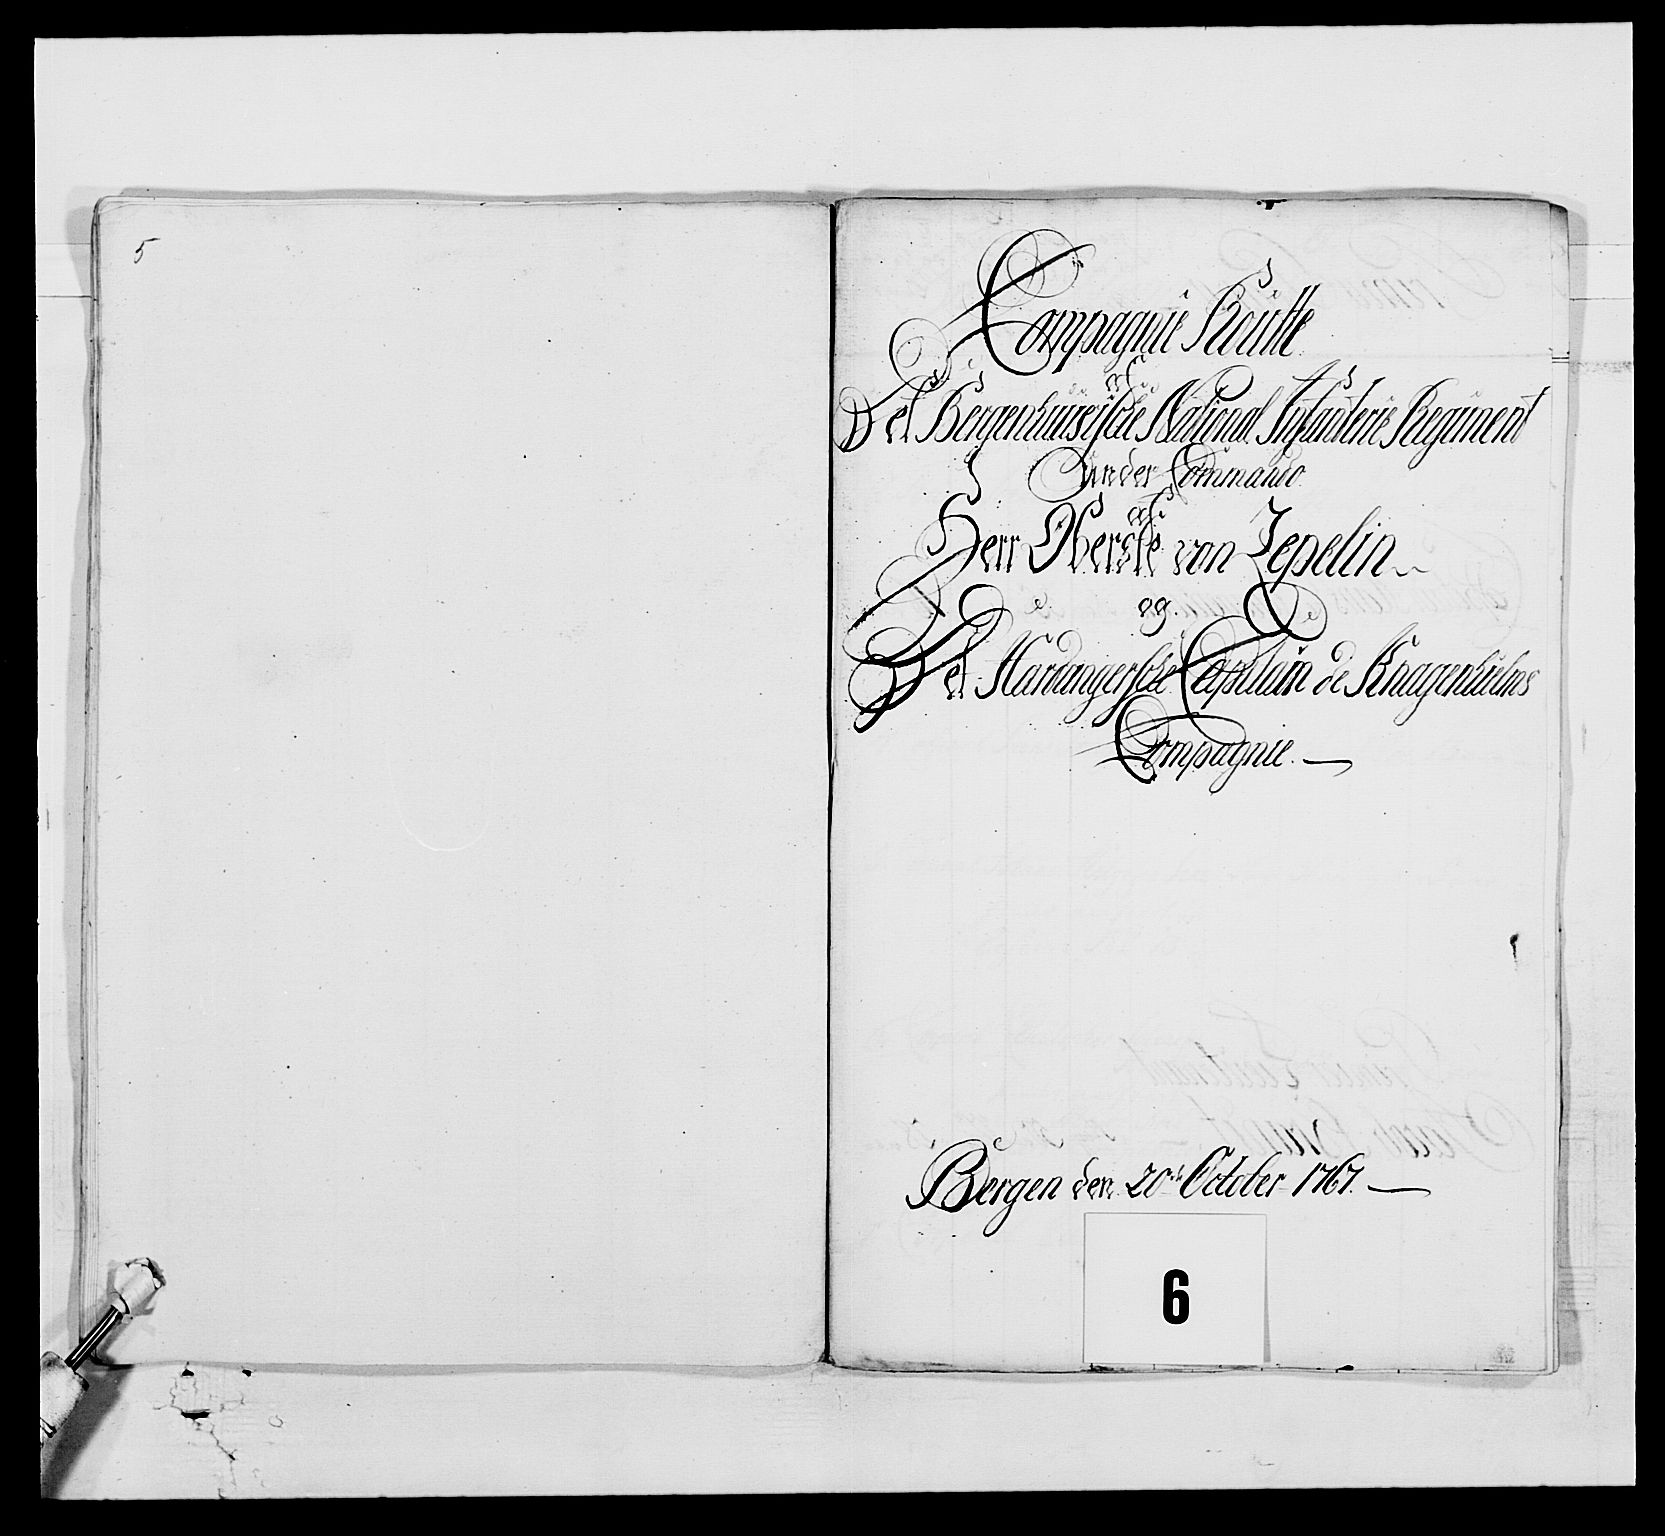 5
Compagnie Roulle
af
Det Bergenhuusiske National Infanterie Regiment
under Commando
af
Herr Oberste von Zepelin
og
Det Hardangerske Capitain de Knagenhielms
Compagnie.
Bergen den 20de October 1767.
6